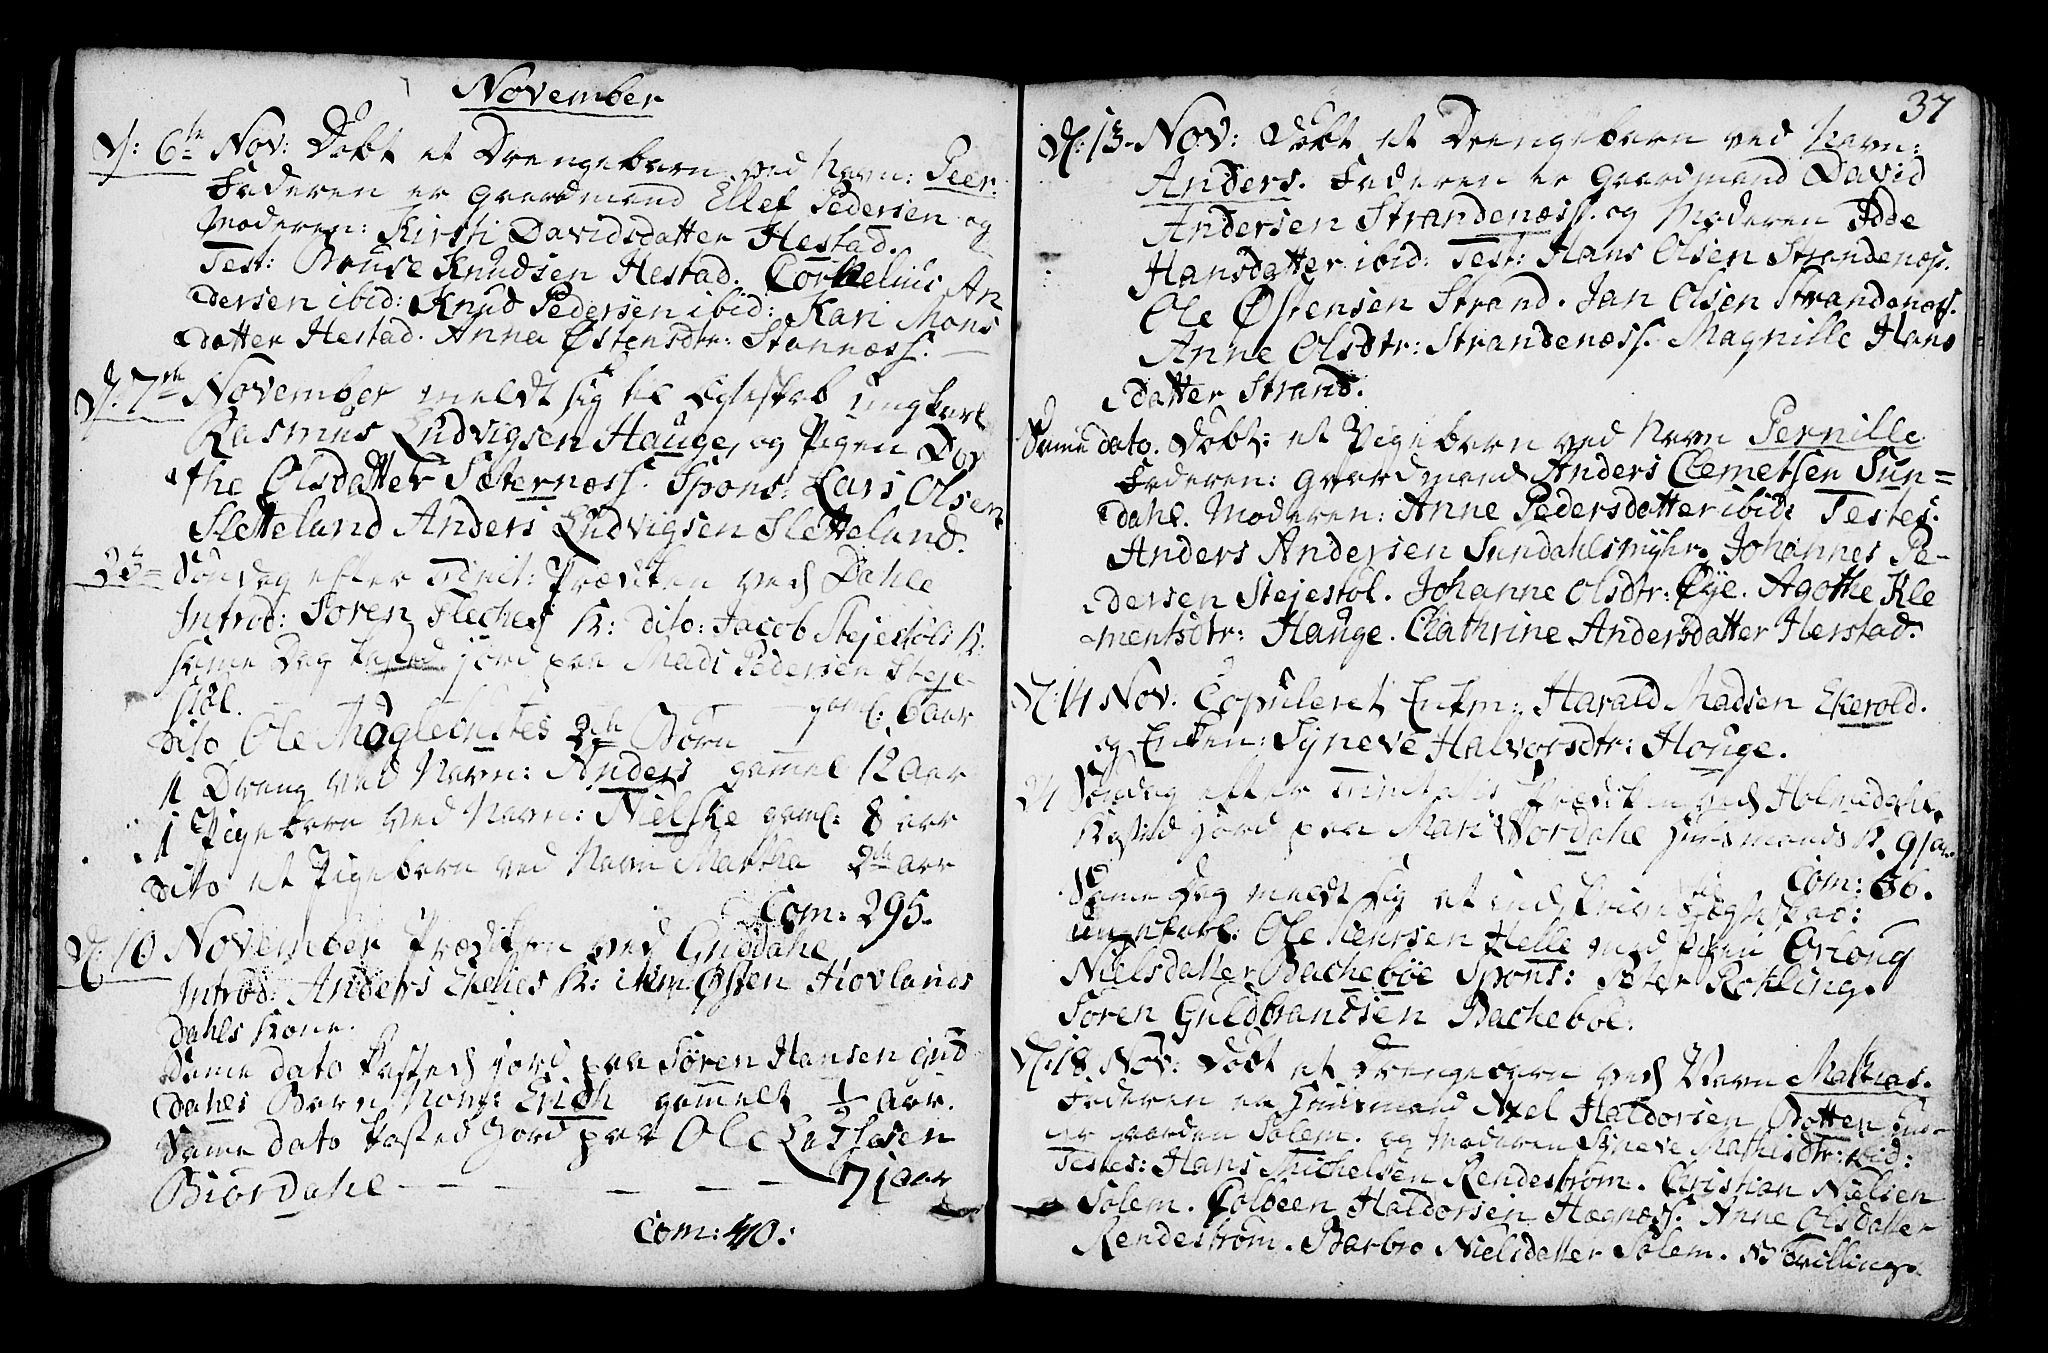 November
D: 6te Nov: Døbt et Drengebarn ved Navn: Peer.
Faderen er Gaardmand Ellef Pedersen og
Moderen: Kirsti Davidsdatter Hestad.
Test: Knudsen Hestad. Cornelius An
dersen ibid: Knud Pedersen ibid: Kari Mons
datter Hestad. Anna Østensdtr: Stannæss.
D. 7de November meldt sig til Egteskab ungkarl
Rasmus Ludvigsen Hauge, og Pigen Dor
the Olsdatter Sæternæss. Spons: Lars Olsen
Sletteland Anders Ludvigsen Sletteland.
23 Søndag efter Trinit: Prædiken ved Dahle
Introd: Søren Fleches K: dito: Jacob Stejestøls K:
Same Dag kasted jord paa Mads Pedersen Steje
støl. gaml: 6 aar
Dito Ole Møglebustes 2de Børn
1 Dreng ved Navn: Anders gamel 12 Aar
1 Pigebarn ved Navn: Nielske gaml: 8 aar
Dito et Pigebarn ved Navn Martha 2de aar
Com: 295.
D: 10 November Prædiken ved Guddahl
Introd: Anders K: item Østen Hovlands
dahls Kone.
Same dato kasted jord paa Søren Hansen Gud
dahls Barn Erich gammelt 1/2 Aar.
Same dato kasted Jord paa Ole Lassesen
Biordahl 71 aar
Com: 40:
37
D: 13 Nov: Døbt et Drengebarn ved Navn:
Anders. Faderen er Gaardmand David
Andersen Strandenæss. og Moderen Idde
Hansdatter ibid: Test: Hans Olsen Strandenæss.
Ole Østensen Strand. Jan Olsen Strandenæss.
Anne Olsdtr: Strandenæss. Magnille Hans
datter Strand.
Same dato. Døbt: et Pigebarn ved Navn Pernille
Faderen: Gaardmand Anders Clemetsen Sun=
dahl. Moderen: Anne Pedersdatter ibid: Testes:
Anders Andersen Sundahlsmyhr. Johannes Pe-
dersen Stejestøl. Johanne Olsdtr: Øye. Agothe Kle
mentsdtr: Hauge. Cathrine Andersdatter Herstad.
D. 14 Nov. Copuleret Enkm: Harald Madsen Ekerold.
og Enken: Syneve Halvorsdtr: Houge.
24 Søndag efter Trinitatis Prædiken ved Holmedahl
Kasted jord paa Mari Huusmands K. 91 aar
Com: 56.
Same Dag meldt sig et indskrive til Egteskab:
ungkarl: Ole Helle med Pigen
Nielsdatter Bachebøe Spons: Peter Røtling.
Søren Guldbrandsen Bachebøe.
D. 18 Nov: Døbt et Drengebarn ved Navn Mathias.
Faderen er Huusmand Axel Haldorsen Botten un-
er gaarden Solem. og Moderen Syneve Mathisdtr: ibid:
Testes: Hans Michelsen Rendestrøm. Christian Nielsen
Solem. Colbeen Haldorsen Hægnæss. Anne Olsdatter
Rendestrøm. Barbro Nielsdatter Solem. NB Tvilling.